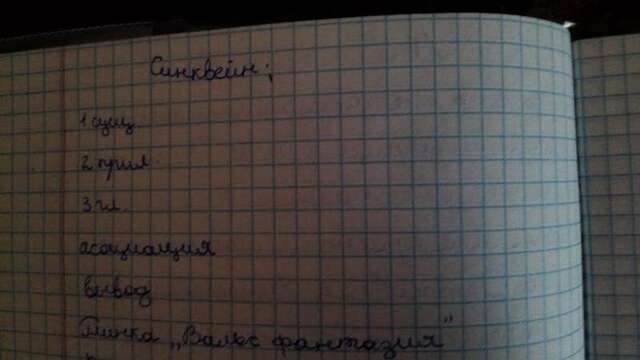 Синквейн:
1 сущ.
2 прил.
3 гл.
асоциация
вывод
Глинка „Вальс фантазия"